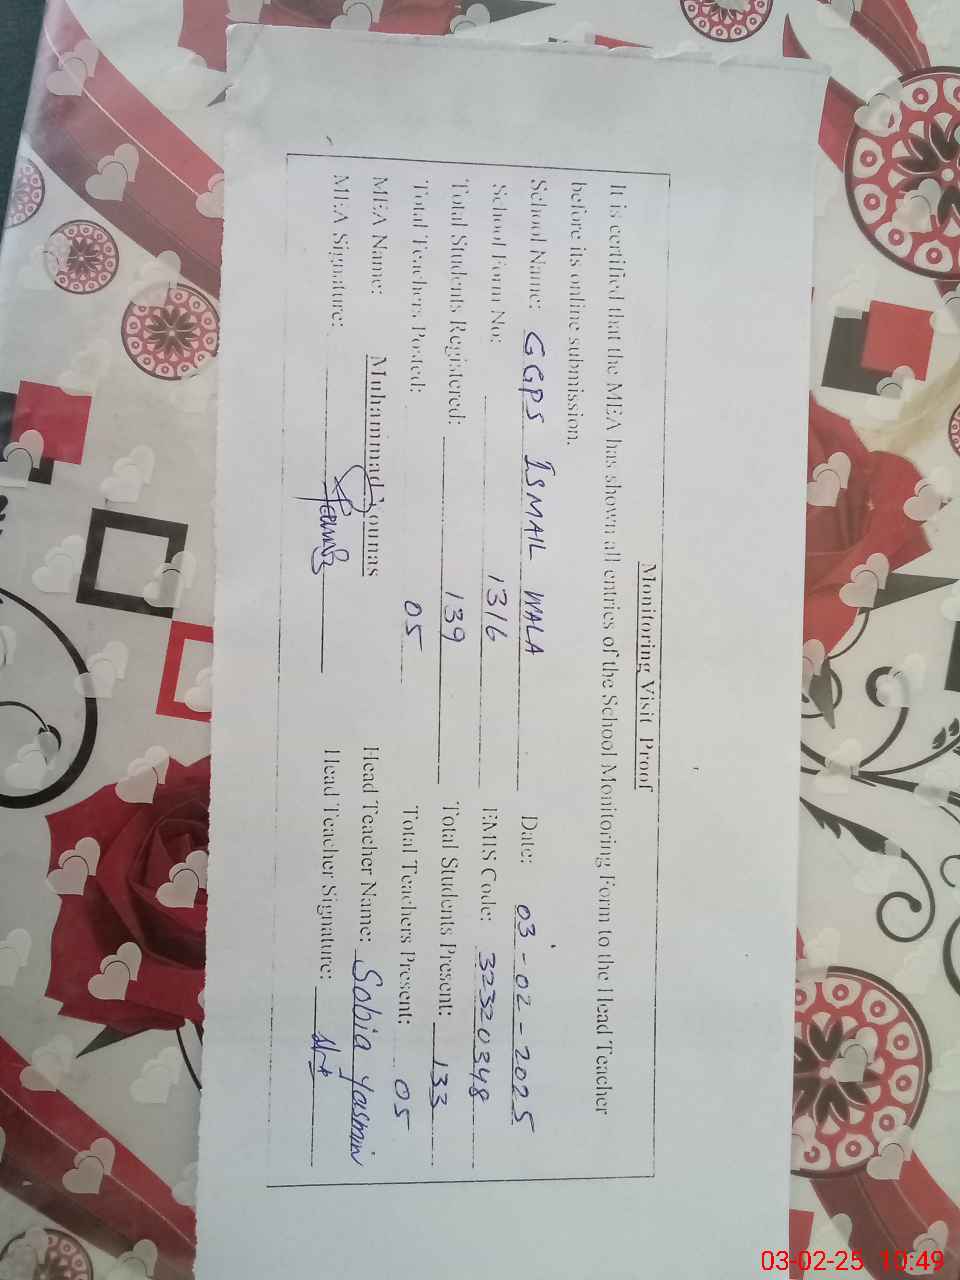 Monitoring Visit Proof
It is certified that the MEA has shown all entries of the School Monitoring Form to the Head Teacher
before its online submission.
School Name: GGPS ISMAIL WALA Date: 03-02-2025
School Form No: 1316 EMIS Code: 32320348
Total Students Registered: 139 Total Students Present: 133
Total Teachers Posted: 05 Total Teachers Present: 05
MEA Name: Muhammad Younas Head Teacher Name: Sobia Yasmin
MEA Signature: Head Teacher Signature:
03-02-25 10:49